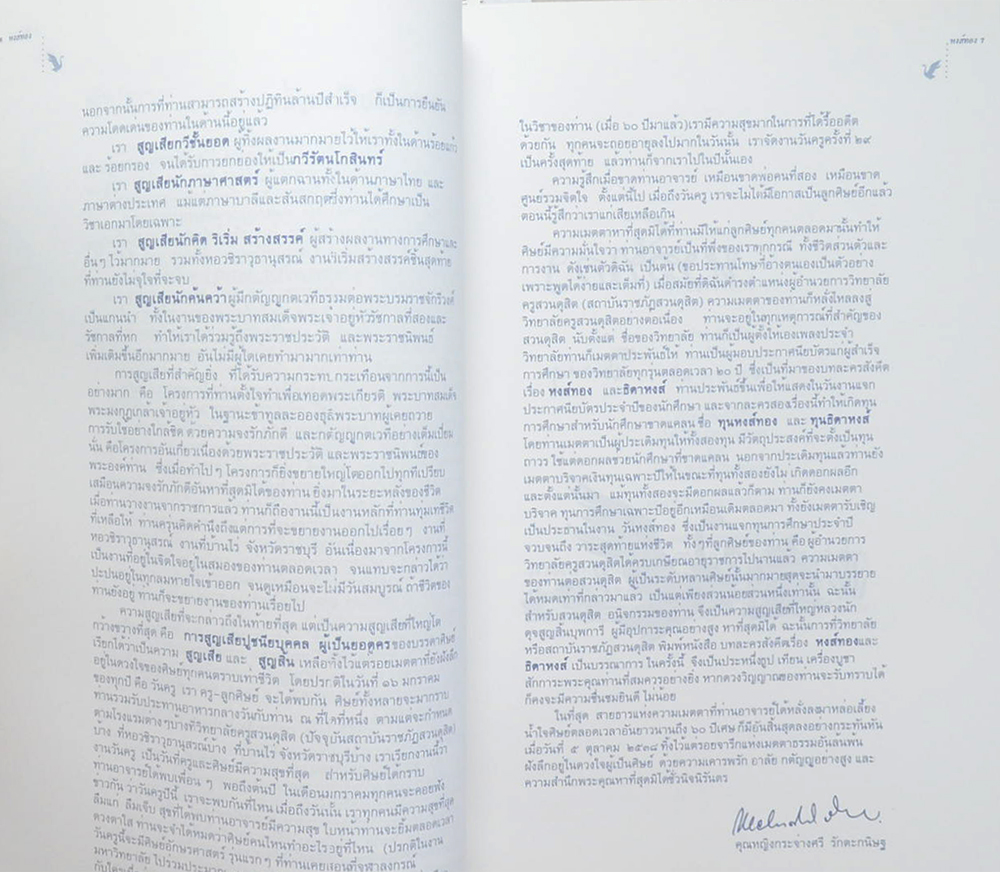 ๖ หงส์ทอง
นอกจากนั้นการที่ท่านสามารถสร้างปฏิทินล้านปีสำเร็จ ก็เป็นการยืนยัน
ความโดดเด่นของท่านในด้านนี้อยู่แล้ว
เรา สูญเสียกวีชั้นยอด ผู้ทิ้งผลงานมากมายไว้ให้เราทั้งในด้านร้อยแก้ว
และ ร้อยกรอง จนได้รับการยกย่องให้เป็นกวีรัตนโกสินทร์
เรา สูญเสียนักภาษาศาสตร์ ผู้แตกฉานทั้งในด้านภาษาไทย และ
ภาษาต่างประเทศ แม้แต่ภาษาบาลีและสันสกฤตซึ่งท่านได้ศึกษาเป็น
วิชาเอกมาโดยเฉพาะ
เรา สูญเสียนักคิด ริเริ่ม สร้างสรรค์ ผู้สร้างผลงานทางการศึกษาและ
อื่นๆ ไว้มากมาย รวมทั้งหอวชิราวุธานุสรณ์ งานริเริ่มสร้างสรรค์ชิ้นสุดท้าย
ที่ท่านยังไม่จุใจที่จะจบ
เรา สูญเสียนักค้นคว้าผู้มีกตัญญูกตเวทีธรรมต่อพระบรมราชจักรีวงศ์
เป็นแกนนำ ทั้งในงานของพระบาทสมเด็จพระเจ้าอยู่หัวรัชกาลที่สองและ
รัชกาลที่หก ทำให้เราได้ร่วมรู้ถึงพระราชประวัติ และพระราชนิพนธ์
เพิ่มเติมขึ้นอีกมากมาย อันไม่มีผู้ใดเคยทำมามากเท่าท่าน
การสูญเสียที่สำคัญยิ่ง ที่ได้รับความกระทบกระเทือนจากการนี้เป็น
อย่างมาก คือ โครงการที่ท่านตั้งใจทำเพื่อเทอดพระเกียรติ พระบาทสมเด็จ
พระมงกุฎเกล้าเจ้าอยู่หัว ในฐานะข้าทูลละอองธุลีพระบาทผู้เคยถวาย
การรับใช้อย่างใกล้ชิด ด้วยความจงรักภักดี และกตัญญูกตเวทีอย่างเต็มเปี่ยม
นั่น คือโครงการอันเกี่ยวเนื่องด้วยพระราชประวัติ และพระราชนิพนธ์ของ
พระองค์ท่าน ซึ่งเมื่อทำไปๆ โครงการก็ยิ่งขยายใหญ่โตออกไปทุกที่เปรียบ
เสมือนความจงรักภักดีอันหาที่สุดมิได้ของท่าน ยิ่งมาในระยะหลังของชีวิต
เมื่อท่านวางงานจากราชการแล้ว ท่านก็ถืองานนี้เป็นงานหลักที่ท่านทุ่มเทชีวิต
ที่เหลือให้ ท่านครุ่นคิดคำนึงถึงแต่การที่จะขยายงานออกไปเรื่อยๆ งานที่
หอวชิราวุธานุสรณ์ งานที่บ้านไร่ จังหวัดราชบุรี อันเนื่องมาจากโครงการนี้
เป็นงานที่อยู่ในจิตใจอยู่ในสมองของท่านตลอดเวลา จนแทบจะกล่าวได้ว่า
ปะปนอยู่ในทุกลมหายใจเข้าออก จนดูเหมือนจะไม่มีวันสมบูรณ์ ถ้าชีวิตของ
ท่านยังอยู่ ท่านก็จะขยายงานของท่านเรื่อยไป
ความสูญเสียที่จะกล่าวถึงในท้ายที่สุด แต่เป็นความสูญเสียที่ใหญ่โต
กว้างขวางที่สุด คือ การสูญเสียปูชนียบุคคล ผู้เป็นยอดครูของบรรดาศิษย์
เรียกได้ว่าเป็นความ สูญเสีย และ สูญสิ้น เหลือทิ้งไว้แต่รอยเมตตาที่ยังฝังลึก
อยู่ในดวงใจของศิษย์ทุกคนตราบเท่าชีวิต โดยปรกติในวันที่ ๑๖ มกราคม
ของทุกปี คือ วันครู เรา ครู-ลูกศิษย์ จะได้พบกัน ศิษย์ทั้งหลายจะมากราบ
ท่านรวมรับประทานอาหารกลางวันกับท่าน ณ ที่ใดที่หนึ่ง ตามแต่จะกำหนด
ตามโรงแรมต่างๆบ้างที่วิทยาลัยครูสวนดุสิต (ปัจจุบันสถาบันราชภัฏสวนดุสิต)
บ้าง ที่หอวชิราวุธานุสรณ์บ้าง ที่บ้านไร่ จังหวัดราชบุรีบ้าง เราเรียกงานนี้ว่า
งานวันครู เป็นวันที่ครูและศิษย์มีความสุขที่สุด สำหรับศิษย์ได้กราบ
ท่านอาจารย์ได้พบเพื่อน ๆ พอถึงต้นปี ในเดือนมกราคมทุกคนจะคอยฟัง
ข่าวกัน ว่าวันครูปีนี้ เราจะพบกันที่ไหน เมื่อถึงวันนั้น เราทุกคนมีความสุขที่สุด
ลืมแก่ ลืมเจ็บ สุขที่ได้พบท่านอาจารย์มีความสุข ใบหน้าท่านจะยิ้มตลอดเวลา
ดวงตาใส ท่านจะจำได้หมดว่าศิษย์คนไหนทำอะไรอยู่ที่ไหน (ปรกติในงาน
วันครูนี้จะมีศิษย์อักษรศาสตร์ รุ่นแรกๆ ที่ท่านเคยสอนที่จุฬาลงกรณ์
มหาวิทยาลัย ไปร่วมประชุม
หงส์ทอง ๗
ในวิชาของท่าน (เมื่อ ๖๐ ปีมาแล้ว)เรามีความสุขมากในการที่ได้รื้ออดีต
ด้วยกัน ทุกคนจะถอยอายุลงไปมากในวันนั้น เราจัดงานวันครูครั้งที่ ๒๙
เป็นครั้งสุดท้าย แล้วท่านก็จากเราไปในปีนั้นเอง
ความรู้สึกเมื่อขาดท่านอาจารย์ เหมือนขาดพ่อคนที่สอง เหมือนขาด
ศูนย์รวมจิตใจ ตั้งแต่นี้ไป เมื่อถึงวันครู เราจะไม่ได้มีโอกาสเป็นลูกศิษย์อีกแล้ว
ตอนนี้รู้สึกว่าเราแก่เสียเหลือเกิน
ความเมตตาที่สุดมิได้ที่ท่านมีให้แก่ลูกศิษย์ทุกคนตลอดมานั้นทำให้
ศิษย์มีความมั่นใจว่า ท่านอาจารย์เป็นที่พึ่งของเราทุกกรณี ทั้งชีวิตส่วนตัวและ
การงาน ดังเช่นตัวดิฉัน เป็นต้น (ขอประทานโทษที่อ้างตนเองเป็นตัวอย่าง
เพราะพูดได้ง่ายและเต็มที่) เมื่อสมัยที่ดิฉันดำรงตำแหน่งผู้อำนวยการวิทยาลัย
ครูสวนดุสิต (สถาบันราชภัฏสวนดุสิต) ความเมตตาของท่านก็หลั่งไหลลงสู่
วิทยาลัยครูสวนดุสิตอย่างต่อเนื่อง ท่านจะอยู่ในทุกเหตุการณ์ที่สำคัญของ
สวนดุสิต นับตั้งแต่ ชื่อของวิทยาลัย ท่านก็เป็นผู้ตั้งให้เองเพลงประจำ
วิทยาลัยท่านก็เมตตาประพันธ์ให้ ท่านเป็นผู้มอบประกาศนียบัตรแก่ผู้สำเร็จ
การศึกษา ของวิทยาลัยทุกรุ่นตลอดเวลา ๒๐ ปี ซึ่งเป็นที่มาของบทละครสังคีต
เรื่อง หงส์ทอง และธิดาหงส์ ท่านประพันธ์ขึ้นเพื่อให้แสดงในวันงานแจก
ประกาศนียบัตรประจำปีของนักศึกษา และจากละครสองเรื่องนี้ทำให้เกิดทุน
การศึกษาสำหรับนักศึกษาขาดแคลน ชื่อ ทุนหงส์ทอง และ ทุนธิดาหงส์
โดยท่านเมตตาเป็นผู้ประเดิมทุนให้ทั้งสองทุน มีวัตถุประสงค์ที่จะตั้งเป็นทุน
ถาวร ใช้แต่ดอกผลช่วยนักศึกษาที่ขาดแคลน นอกจากประเดิมทุนแล้วท่านยัง
เมตตาบริจาคเงินทุนเฉพาะปีให้ในขณะที่ทุนทั้งสองยังไม่ เกิดดอกผลอีก
และตั้งแต่นั้นมา แม้ทุนทั้งสองจะมีดอกผลแล้วก็ตาม ท่านก็ยังคงเมตตา
บริจาค ทุนการศึกษาเฉพาะปีอยู่อีกเหมือนเดิมตลอดมา ทั้งยังเมตตารับเชิญ
เป็นประธานในงาน วันหงส์ทอง ซึ่งเป็นงานแจกทุนการศึกษาประจำปี
จวบจนถึง วาระสุดท้ายแห่งชีวิต ทั้งๆที่ลูกศิษย์ของท่าน คือ ผู้อำนวยการ
วิทยาลัยครูสวนดุสิตได้ครบเกษียณอายุราชการไปนานแล้ว ความเมตตา
ของท่านต่อสวนดุสิต ผู้เป็นระดับหลานศิษย์นั้นมากมายสุดจะนำมาบรรยาย
ได้หมดเท่าที่กล่าวมาแล้ว เป็นแต่เพียงส่วนน้อยส่วนหนึ่งเท่านั้น ฉะนั้น
สำหรับสวนดุสิต อนิจกรรมของท่าน จึงเป็นความสูญเสียที่ใหญ่หลวงนัก
ดุจสูญสิ้นบุพการี ผู้มีอุปการะคุณอย่างสูง หาที่สุดมิได้ ฉะนั้นการที่วิทยาลัย
หรือสถาบันราชภัฏสวนดุสิต พิมพ์หนังสือ บทละครสังคีตเรื่อง หงส์ทองและ
ธิดาหงส์ เป็นบรรณาการ ในครั้งนี้ จึงเป็นประหนึ่งธูป เทียน เครื่องบูชา
สักการะพระคุณท่านที่สมควรอย่างยิ่ง หากดวงวิญญาณของท่านจะรับทราบได้
ก็คงจะมีความชื่นชมยินดี ไม่น้อย
ในที่สุด สายธารแห่งความเมตตาที่ท่านอาจารย์ได้หลั่งลงมาหล่อเลี้ยง
น้ำใจศิษย์ตลอดเวลาอันยาวนานถึง ๖๐ ปีเศษ ก็มีอันสิ้นสุดลงอย่างกระทันหัน
เมื่อวันที่ ๕ ตุลาคม ๒๕๓๘ ทิ้งไว้แต่รอยจารึกแห่งเมตตาธรรมอันล้นพ้น
ฝังลึกอยู่ในดวงใจผู้เป็นศิษย์ ด้วยความเคารพรัก อาลัย กตัญญูอย่างสูง และ
ความสำนึกพระคุณหาที่สุดมิได้ชั่วนิจนิรันดร
คุณหญิงกระจ่างศรี รักตะกนิษฐ